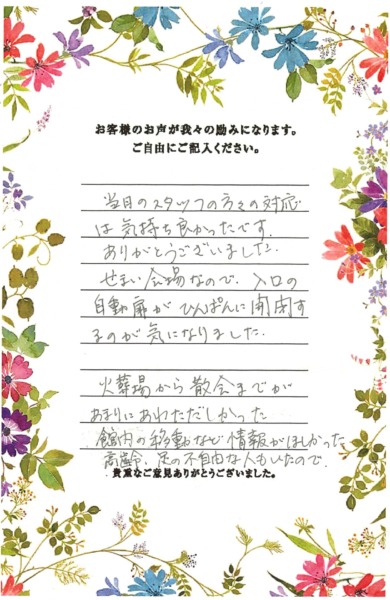 お客様のお声が我々の励みになります。
ご自由にご記入ください。
当日のスタッフの方々の対応
は気持ち良かったです。
ありがとうございました。
せまい会場なので、入口の
自動扉がひんぱんに開閉す
るのが気になりました。
火葬場から散会までが
あまりにあわただしかった
館内の移動など情報がほしかった
高齢、足の不自由な人もいたので、
貴重なご意見ありがとうございました。